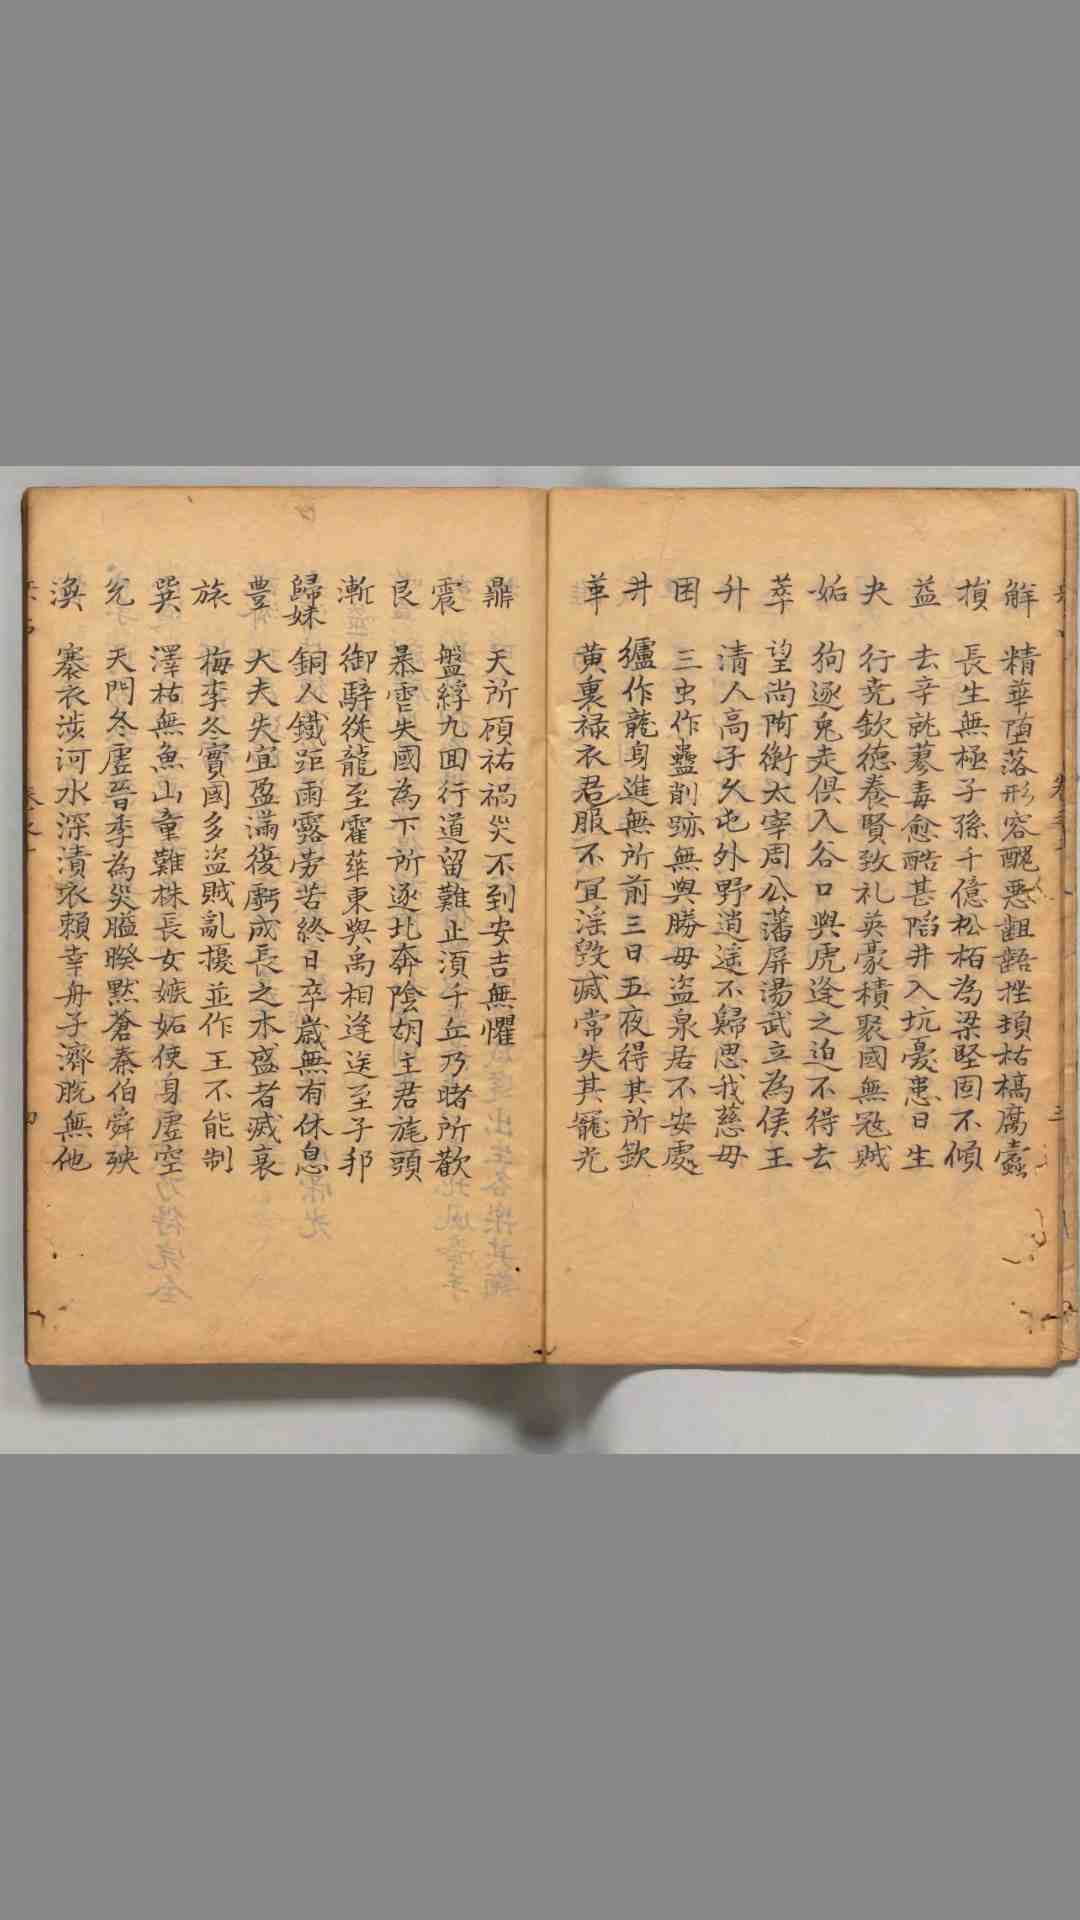 解 精華墮落形容醜惡齟齬挫頓枯槁腐蠹
損 長生無極子孫千億松栢為梁堅固不傾
益 去辛就蓼毒愈酷甚陷井入坑憂患日生
夬 行堯欽德養賢致礼英豪積聚國無冦賊
姤 狗逐兎走俱入谷口與虎逢之迫不得去
萃 望尚阿衡太宰周公藩屏湯武立為侯王
升 清人高子久屯外野逍遥不歸思我慈母
困 三虫作蠱削跡無與勝母盜泉居不安處
井 作龍身進無所前三日五夜得其所歡
革 黄裏禄衣君服不冝淫毀滅常失其寵光
鼎 天所顧祐禍災不到安吉無懼
震 盤紆九回行道留難止須千丘乃睹所歡
艮 暴雪失國為下所逐北奔陰胡主君旄頭
漸 御騂從龍至霍華東與禹相逢送至子邦
歸妹 銅人鐵距雨露勞苦終日卒歲無有休息
豐 大夫失宜盈滿復虧成長之木盛者滅衰
旅 梅李冬實國多盜賊亂擾並作王不能制
巽 澤枯無魚山童難株長女嫉妬使身虛空
兊 天門冬虛晉季為災𦝫暌黙蒼秦伯舜殃
渙 褰衣涉河水深漬衣賴幸舟子濟脫無他